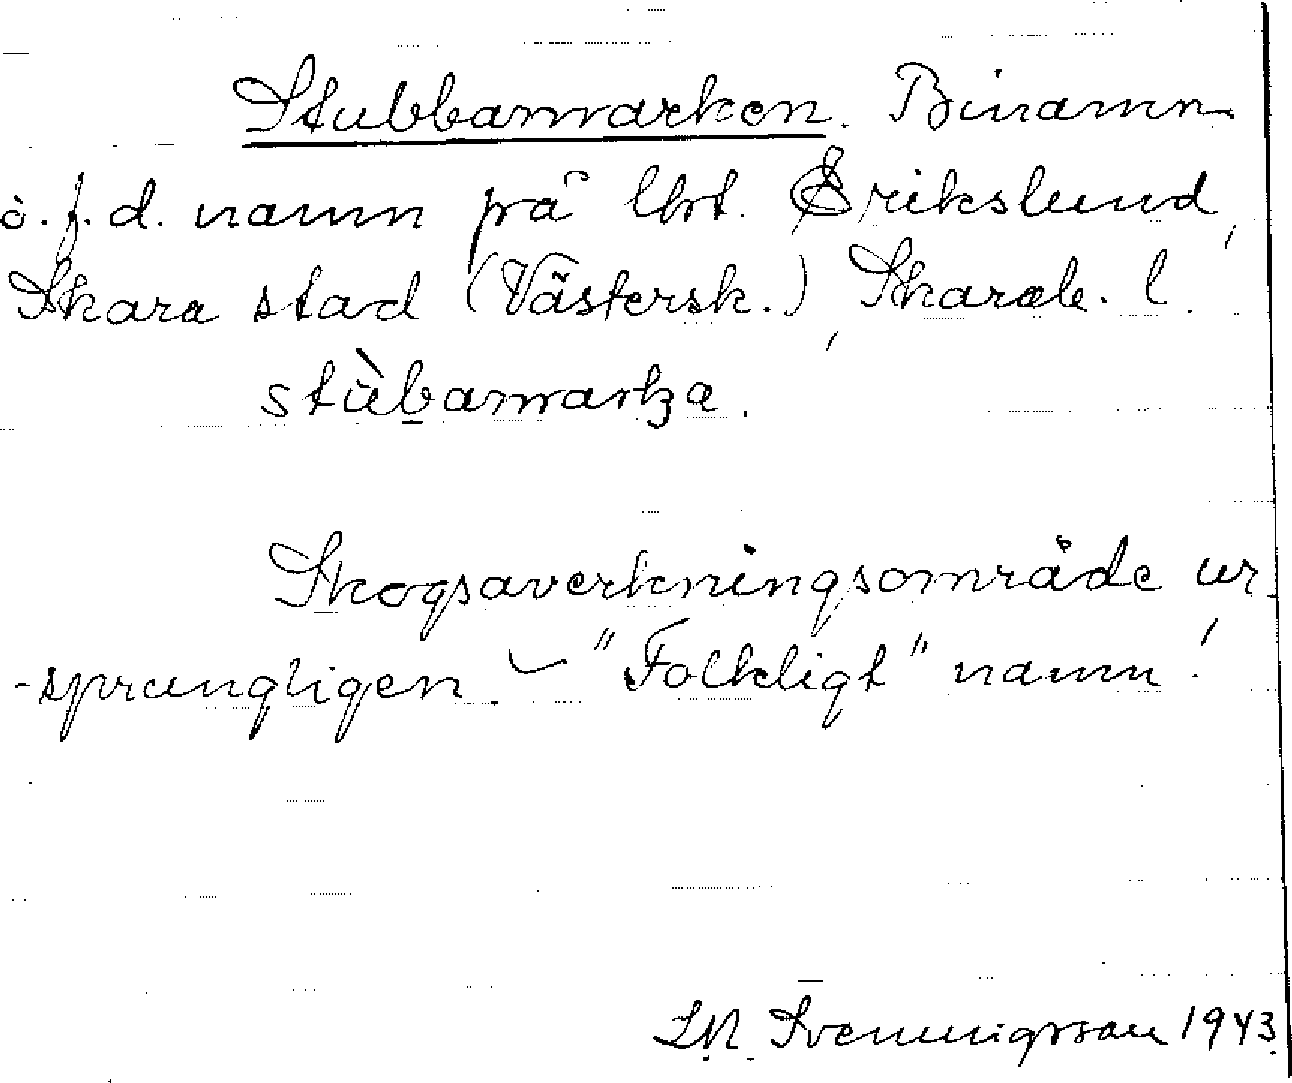 Stubbamarken. Binamn
o. f. d. namn på lht. Erikslund,
Skara stad (Västersk.), Skarab. l.
stùbamarka.
Skogsavverkningsområde ur-
-sprungligen. – "Folkligt" namn!
Svenningsson 1943